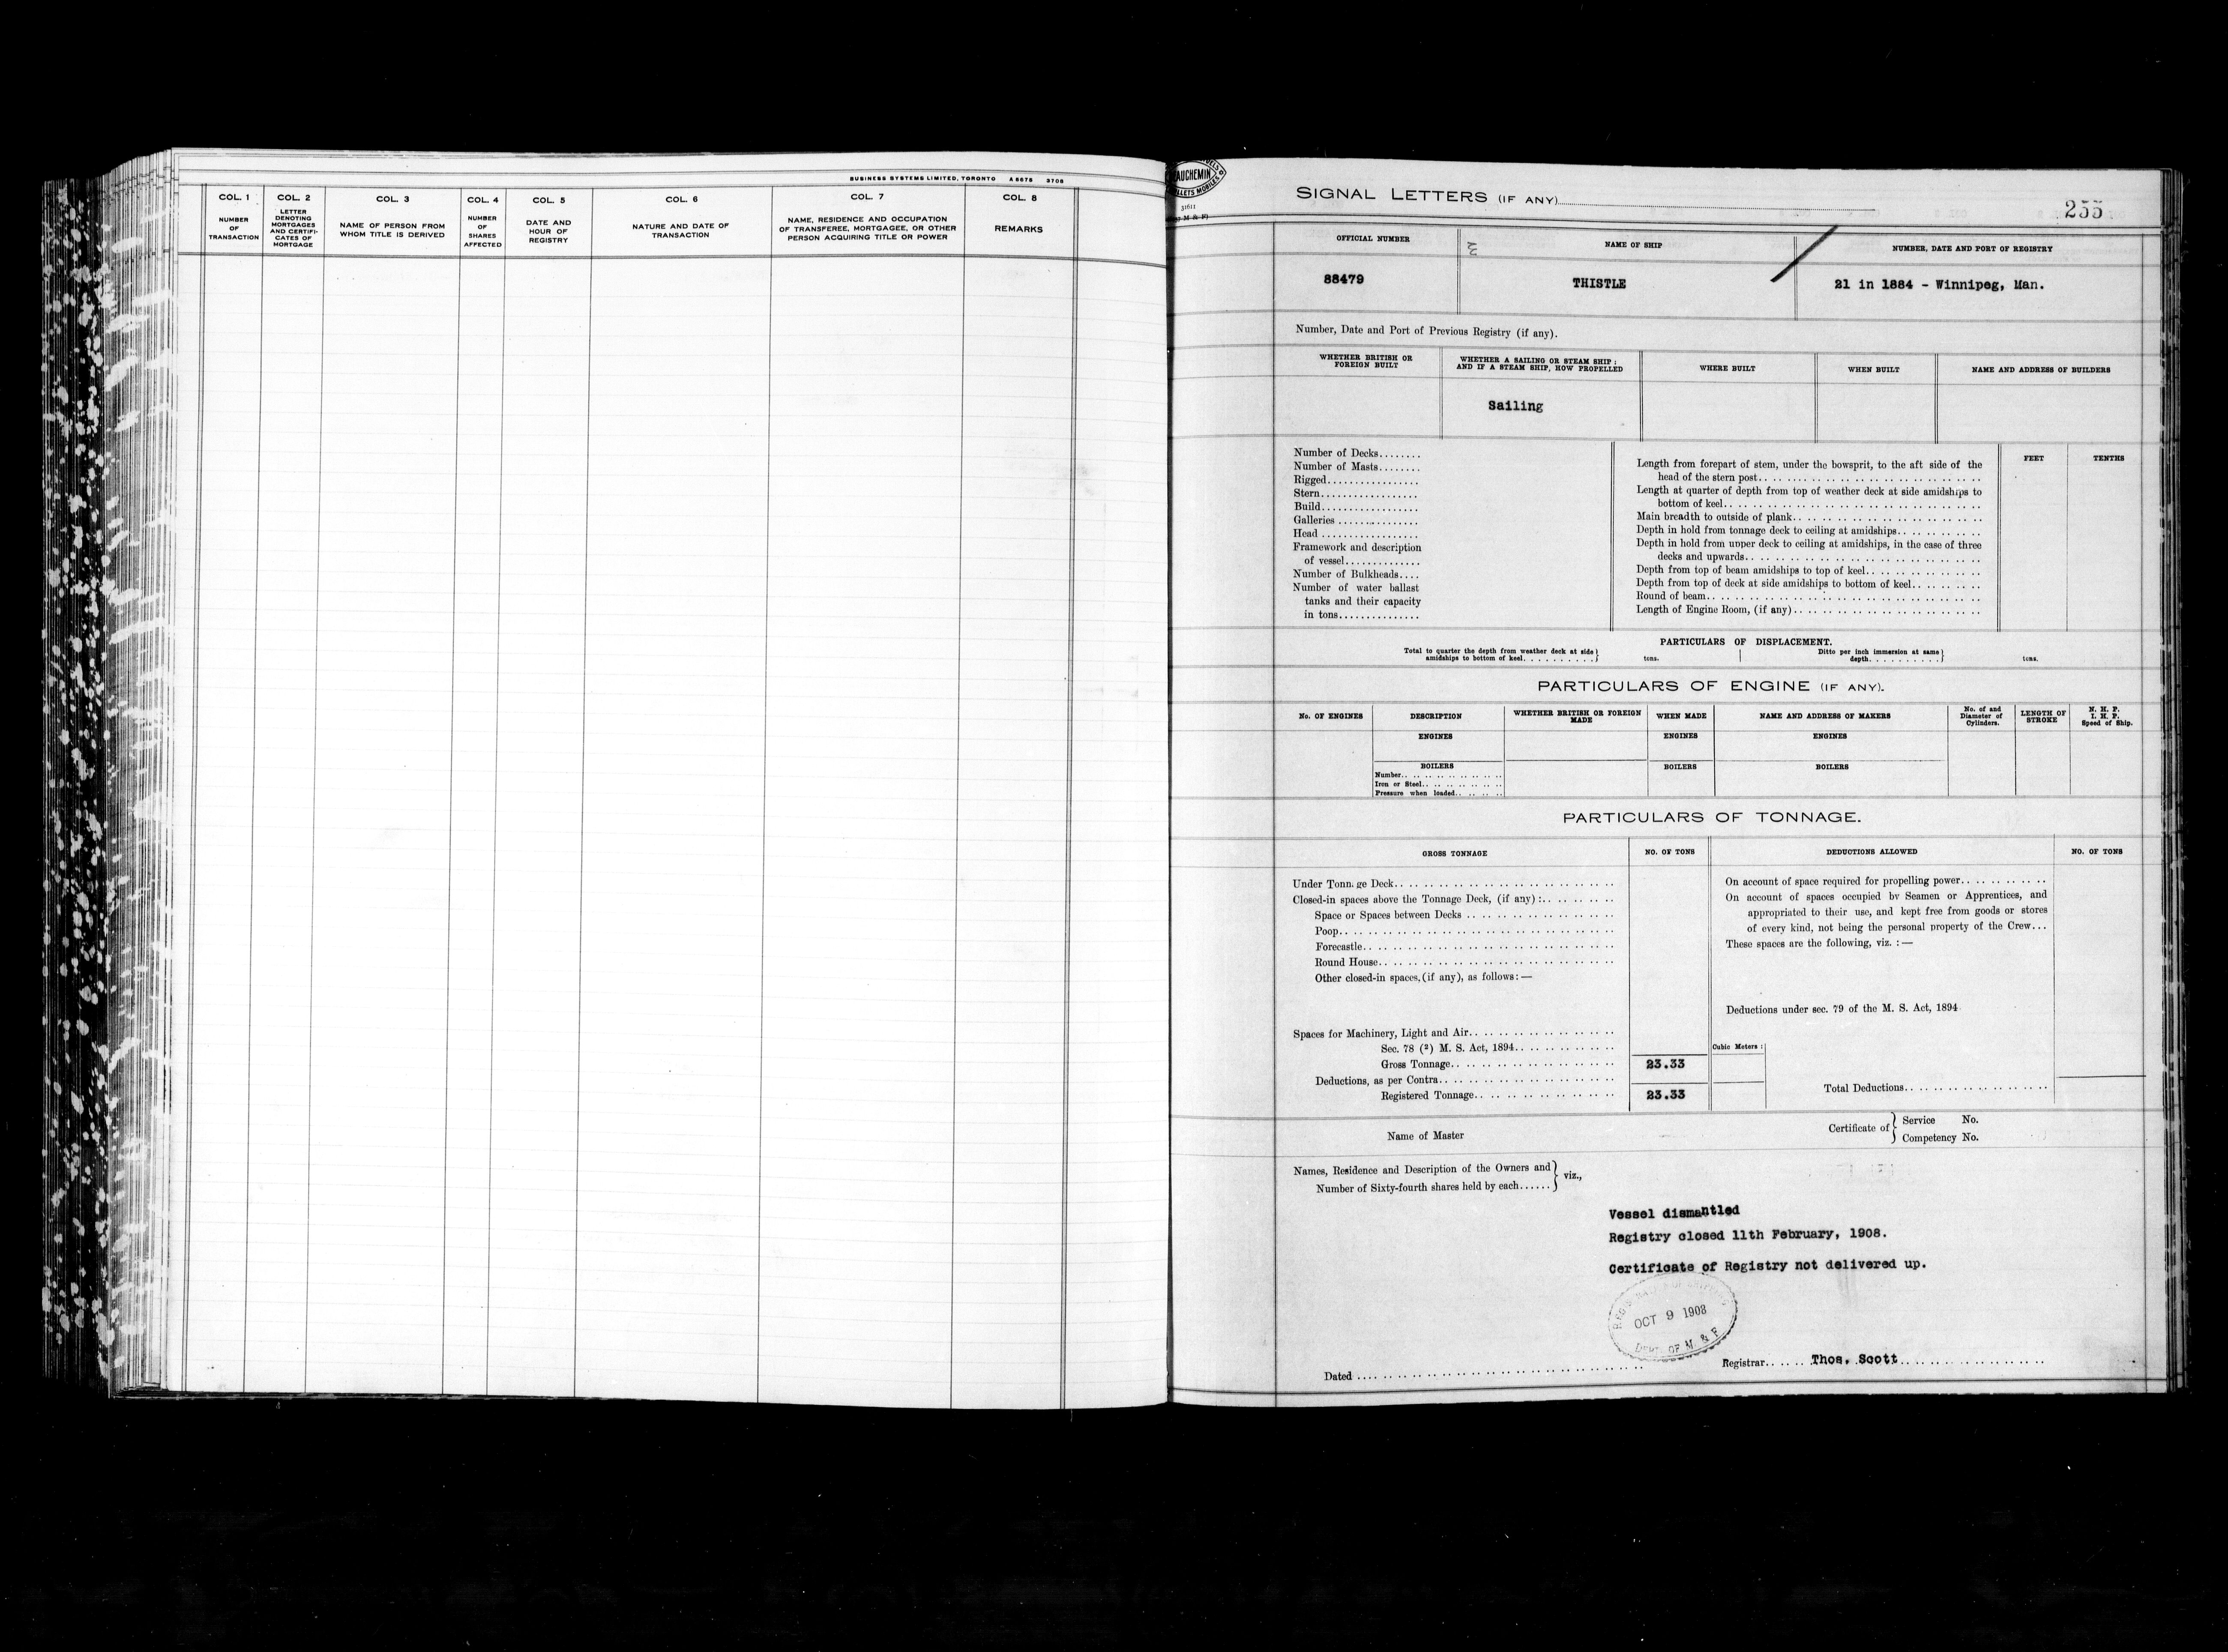 BUSINESS SYSTEMS LIMITED, TORONTO A 6678 3708
COL. 1 COL. 2 COL. 3 COL. 4 COL. 5 COL. 6 COL. 7 COL. 8
NUMBER OF TRANSACTION
LETTER DENOTING MORTGAGES AND CERTIFI- CATES OF MORTGAGE
NAME OF PERSON FROM WHOM TITLE IS DERIVED
NUMBER OF SHARES AFFECTED
DATE AND HOUR OF REGISTRY
NATURE AND DATE OF TRANSACTION
NAME, RESIDENCE AND OCCUPATION OF TRANSFEREE, MORTGAGEE, OR OTHER PERSON ACQUIRING TITLE OR POWER
REMARKS
AUCHEMIN
31611
SIGNAL LETTERS (IF ANY)
255
OFFICIAL NUMBER NAME OF SHIP NUMBER, DATE AND PORT OF REGISTRY
88479 THISTLE 21 in 1884 - Winnipeg, Man.
Number, Date and Port of Previous Registry (if any).
WHETHER BRITISH OR FOREIGN BUILT
WHETHER A SAILING OR STEAM SHIP; AND IF A STEAM SHIP, HOW PROPELLED
WHERE BUILT
WHEN BUILT
NAME AND ADDRESS OF BUILDERS
Sailing
Number of Decks........
Number of Masts........
Rigged................
Stern.................
Build.................
Galleries ..............
Head .................
Framework and description
of vessel..............
Number of Bulkheads....
Number of water ballast
tanks and their capacity
in tons...............
FEET TENTHS
Length from forepart of stem, under the bowsprit, to the aft side of the
head of the stern post..
Length at quarter of depth from top of weather deck at side amidships to
bottom of keel..
Main breadth to outside of plank..
Depth in hold from tonnage deck to ceiling at amidships..
Depth in hold from upper deck to ceiling at amidships, in the case of three
decks and upwards..
Depth from top of beam amidships to top of keel..
Depth from top of deck at side amidships to bottom of keel..
Round of beam..
Length of Engine Room, (if any)..
PARTICULARS OF DISPLACEMENT.
Total to quarter the depth from weather deck at side
amidships to bottom of keel.......... tons.
Ditto per inch immersion at same
depth.......... tons.
PARTICULARS OF ENGINE (IF ANY).
No. OF ENGINES
DESCRIPTION
WHETHER BRITISH OR FOREIGN MADE
WHEN MADE
NAME AND ADDRESS OF MAKERS
No. of and Diameter of Cylinders.
LENGTH OF STROKE
N. H. P. I. H. P. Speed of Ship.
ENGINES ENGINES ENGINES
BOILERS BOILERS BOILERS
Number..
Iron or Steel..
Pressure when loaded..
PARTICULARS OF TONNAGE.
GROSS TONNAGE NO. OF TONS DEDUCTIONS ALLOWED NO. OF TONS
Under Tonn.ge Deck..
Closed-in spaces above the Tonnage Deck, (if any) :..
Space or Spaces between Decks ..
Poop..
Forecastle..
Round House..
Other closed-in spaces, (if any), as follows: —
Spaces for Machinery, Light and Air..
Sec. 78 (2) M. S. Act, 1894..
Gross Tonnage.. 23.33
Deductions, as per Contra..
Registered Tonnage.. 23.33
On account of space required for propelling power..
On account of spaces occupied by Seamen or Apprentices, and
appropriated to their use, and kept free from goods or stores
of every kind, not being the personal property of the Crew...
These spaces are the following, viz. : —
Deductions under sec. 79 of the M. S. Act, 1894
Cubic Meters :
Total Deductions..
Name of Master
Certificate of Service No.
Competency No.
Names, Residence and Description of the Owners and
Number of Sixty-fourth shares held by each...... viz.,
Vessel dismantled
Registry closed 11th February, 1908.
Certificate of Registry not delivered up.
OCT 9 1908
DEPT. OF M. & F.
Dated ....
Registrar.. Thos. Scott